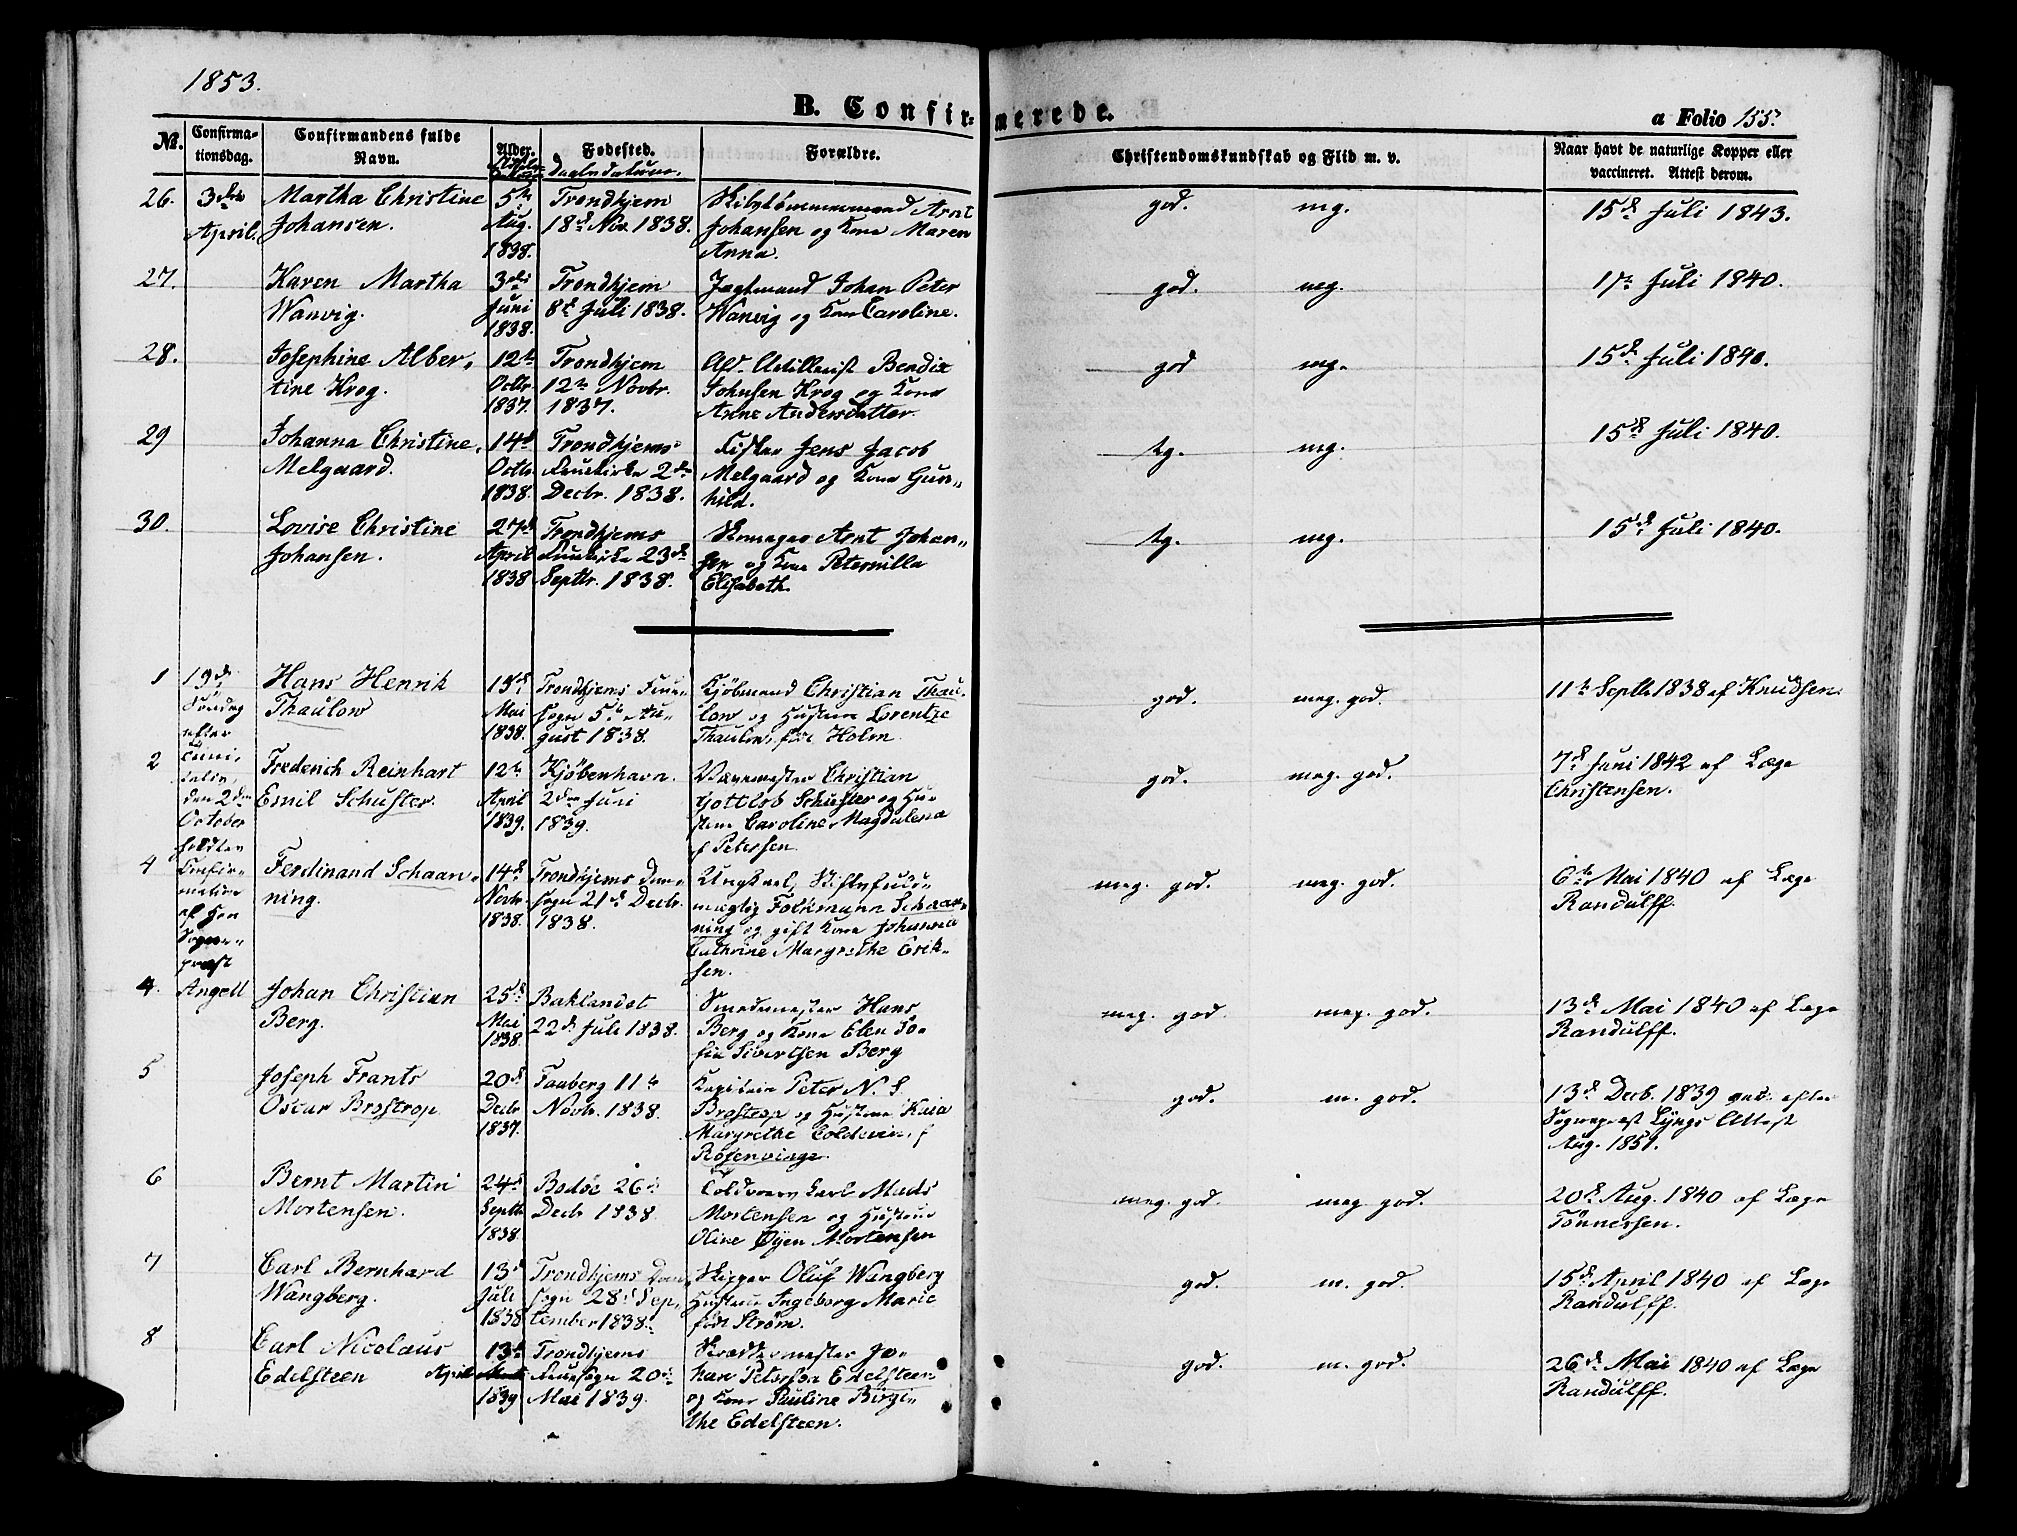 1853.
B. Confirmerede.
a Folio 155.
Nr. Confirmationsdag. Confirmandens fulde Navn. Alder. Fødested. Forældre. Christendomskundskab og Flid m. v. Naar havt de naturlige Kopper eller vaccineret. Attest derom.
Daabsdatum.
26. 3die Martha Christine 5te Trondhjem Skibstømmermand Arnt god. mg. 15de Juli 1843.
April. Johansen. Aug. 18de Nov. 1838. Johansen og Kone Maren
1838. Anna.
27. Karen Martha 3die Trondhjem Jagtmand Johan Peter god. mg. 1ste Juli 1840.
Wanvig. Juni 8de Juli 1838. Wanvig og Kone Caroline.
1838.
28. Josephine Alber- 12te Trondhjem Afs. Artillerist Bendix god mg. 15de Juli 1840.
tine Krog. Octbr. 12te Novbr. Johnsen Krog og Kone
1837. 1837. Anne Andersdatter.
29 Johanna Christine 14de Trondhjems Fisker Jens Jacob tg. mg. 15de Juli 1840.
Melgaard. Octbr. Fruekirke 2den Melgaard og Kone Gun-
1838. Decbr. 1838. hild.
30. Lovise Christine 27de Trondhjems Arnt Johan- tg. mg. 15de Juli 1840.
Johansen. April Fruekirke 23de sen og Kone Peternilla
1838 Septbr. 1838. Elisabeth.
1 19de Hans Henrik 15de Trondhjems Frue- Kjøbmand Christian Thau- god. meg. god. 11te Septbr 1838 af Knudsen.
Søndag Thaulow Mai sogn 5te Au- low og Hustrue Lorentze
efter 1838. gust 1838. Thaulow, født Holm.
2 Trini- Frederich Reinhart 12te Kjøbenhavn. Christian god. meg. god. 7de Juni 1842 af Læge
tatis, Emil Schuster. April 2den Juni Gottlob Schuster og Hu- Christensen.
den 2den 1839. 1839. strue Caroline Magdalena
October f. Petersen.
holdtes
4 Confir- Ferdinand Schaan- 14de Trondhjems Dom- Ungkarl, Stiftsfuld- meg. god. meg. god. 6te Mai 1840 af Læge
mation ning. Novbr. sogn 21de Decbr. mægtig Folkmann Schaan- Randulff.
af Hr. 1838. 1838. ning og gift Kone Johanna
Sogne- Cathrine Margrethe Erik-
præst sen.
4. Angell Johan Christian 25de Baklandet Smedemester Hans meg. god. meg. god. 13de Mai 1840 af Læge
Berg. Mai 22de Juli 1838. Berg og Kone Elen So- Randulff.
1838. fie Sivertsen Berg
5 Joseph Frants 20de Faaberg 11te Kapitain Peter N. S god. m. god. 13de Decb. 1839 vac. efter
Oscar Brostrop. Decbr Novbr. 1838. Brostrop og Hustrue Kaia Sognepræst Lyngs Attest
1837. Margrethe Coldevin, f. Aug. 1851.
Rosenvinge.
6 Bernt Martin 24de Bodøe 26de Carl Mads meg. god. meg god. 20de Aug. 1840 af Læge
Mortensen. Septbr Decbr 1838. Mortensen og Hustrue Tønnessen.
1838. Oline Øyen Mortensen
7 Carl Bernhard 13de Trondhjems Dom- Skipper Oluf Wangberg god. m. god. 15de April 1840 af Læge
Wangberg. Juli sogn 28de Sep- Hustrue Ingeborg Marie Randulff.
1838 tember 1838. født Strøm.
8 Carl Nicolaus 13de Trondhjems Skræddermester Jo- god. m. god. 26de Mai 1840 af Læge
Edelsteen April Fruesogn 20de han Petersen Edelsteen Randulff.
1839 Mai 1839. og Kone Pauline Birgi-
the Edelsteen.